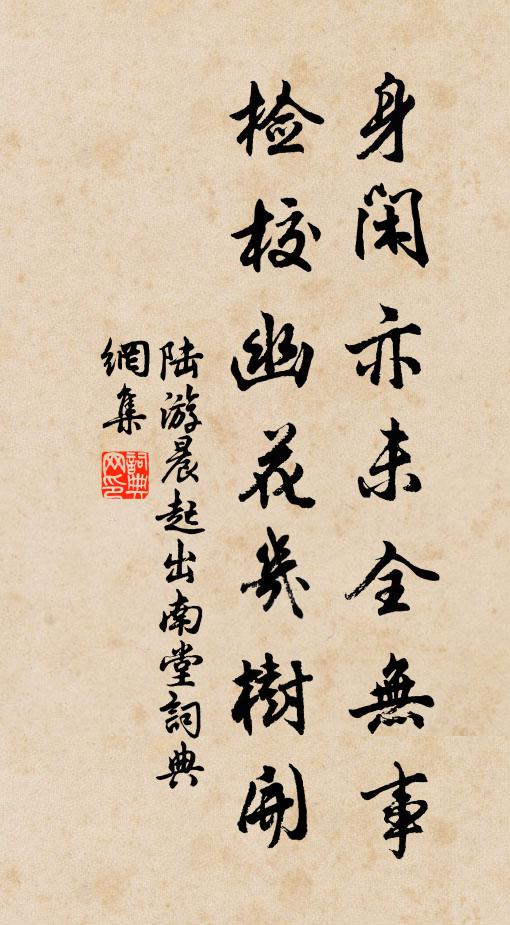 身閑亦未全無事
檢校幽花幾樹開
陸游晨起出南堂詞典
網集
詞典網印